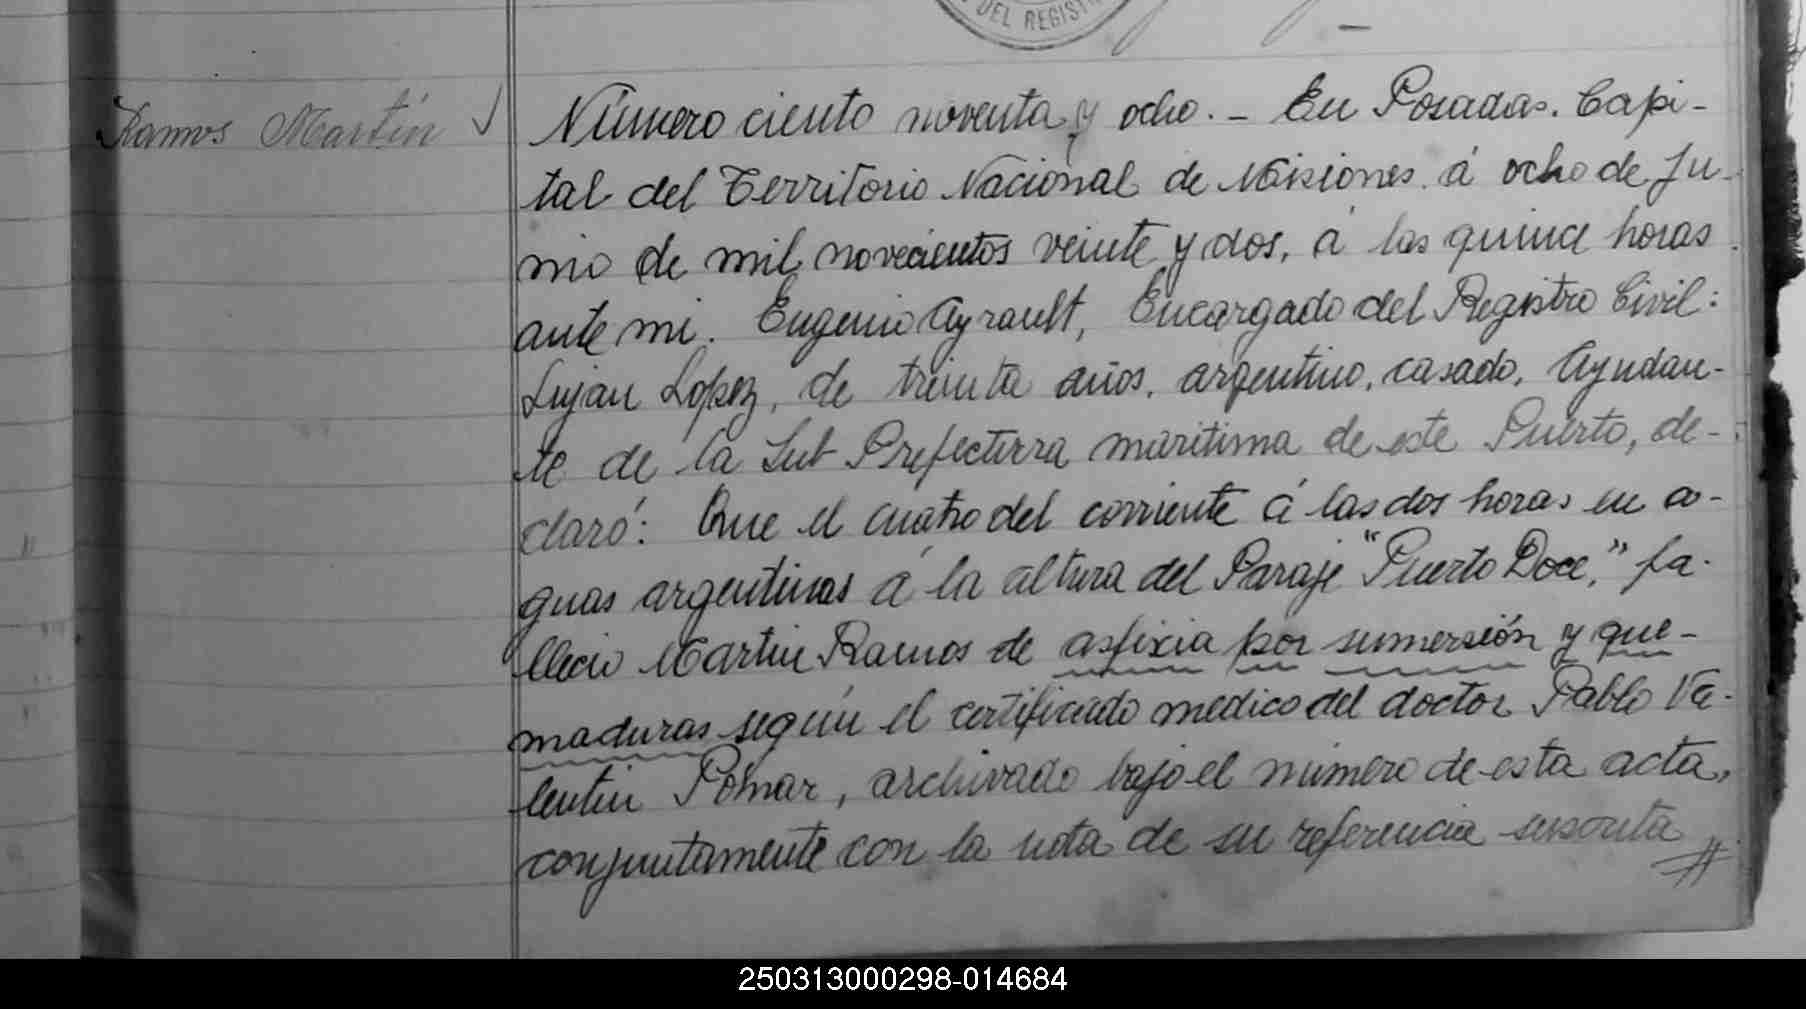 DEL REGIST
Ramos Martín
Número ciento noventa y ocho. - En Posadas. Capi-
tal del Territorio Nacional de Misiones. á ocho de Ju-
nio de mil novecientos veinte y dos, á las quince horas
ante mi. Eugenio Ayrault, Encargado del Registro Civil:
Lujan Lopez, de treinta años. argentino, casado, Ayudan-
te de la Sub Prefectura maritima de este Puerto, de-
claró: Que el cuatro del corriente á las dos horas en a-
guas argentinas á la altura del Paraje "Puerto Doce," fa-
lleció Martin Ramos de asfixia por sumersión y que-
maduras según el certificado medico del doctor Pablo Va-
lentin Pomar, archivado bajo el número de esta acta,
conjuntamente con la nota de su referencia suscrita
250313000298-014684